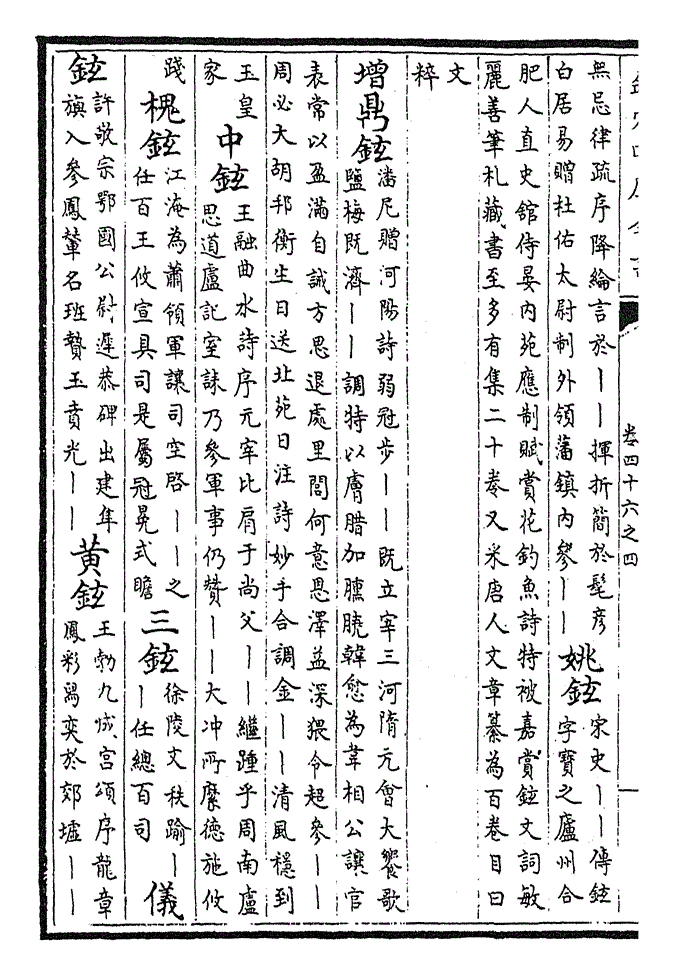 卷四十六之四
無忌律疏序降綸言於丨丨揮折簡於髦彦
白居易贈杜佑太尉制外領藩鎮内參丨丨
姚鉉
宋史丨丨傳鉉
字寶之廬州合
肥人直史館侍宴内苑應制賦賞花釣魚詩特被嘉賞鉉文詞敏
麗善筆札藏書至多有集二十卷又采唐人文章纂為百卷目曰
文
粹
增鼎鉉
潘尼贈河陽詩弱冠步丨丨既立宰三河隋元會大饗歌
鹽梅既濟丨丨調特以膚腊加臐膮韓愈為韋相公讓官
表常以盈滿自誡方思退處里閭何意恩澤益深猥令超參丨丨
周必大胡邦衡生日送北苑日注詩妙手合調金丨丨清風穏到
玉皇
家
中鉉
王融曲水詩序元宰比肩于尚父丨丨繼踵乎周南盧
思道盧記室誄乃參軍事仍賛丨丨大冲所縻德施攸
踐
槐鉉
江淹為蕭領軍讓司空啓丨丨之
任百王攸宣具司是屬冠冕式瞻
三鉉
徐陵文秩踰丨
丨任總百司
儀
鉉
許敬宗鄂國公尉遲恭碑出建隼
旟入參鳳輦名班贊玉賁光丨丨
黃鉉
王勃九成宫頌序龍章
鳳彩舄奕於郊墟丨丨